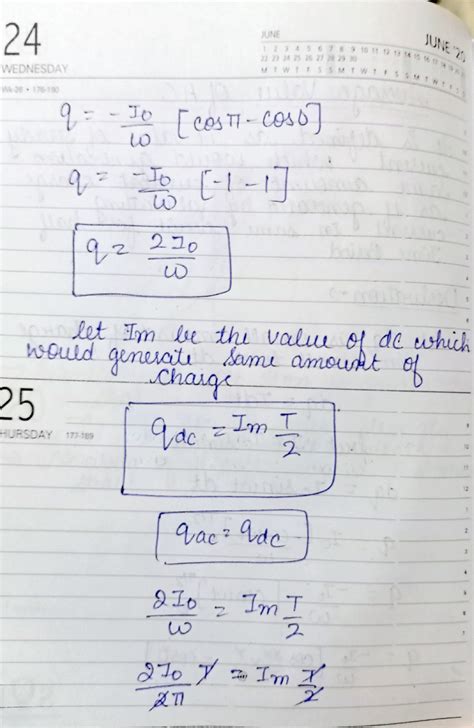 24
WEDNESDAY
Wk-26 • 176-190
JUNE
JUNE '20
1 2 3 4 5 6 7 8 9 10 11 12 13 14 15 16 17 18 19 20 21
22 23 24 25 26 27 28 29 30
M T W T F S S M T W T F S S M T W T F S S
q = -I₀/ω [cosπ - cos0]
q = -I₀/ω [-1 - 1]
q = 2I₀/ω
let Im be the value of dc which
would generate same amount of
charge
25
HURSDAY 177-189
q dc = Im T/2
q ac = q dc
2I₀/ω = Im T/2
2I₀/2π T = Im T/2